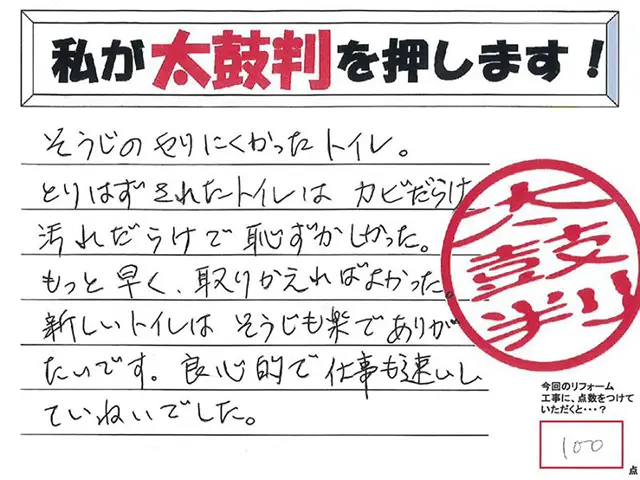 私が太鼓判を押します！
そうじのやりにくかったトイレ。
とりはずされたトイレは カビだらけ
汚れだらけで恥ずかしかった。
もっと早く、取りかえればよかった。
新しいトイレは そうじも楽でありが
たいです。良心的で仕事も速いし
ていねいでした。
太鼓判
今回のリフォーム
工事に、点数をつけて
いただくと・・・？
100
点